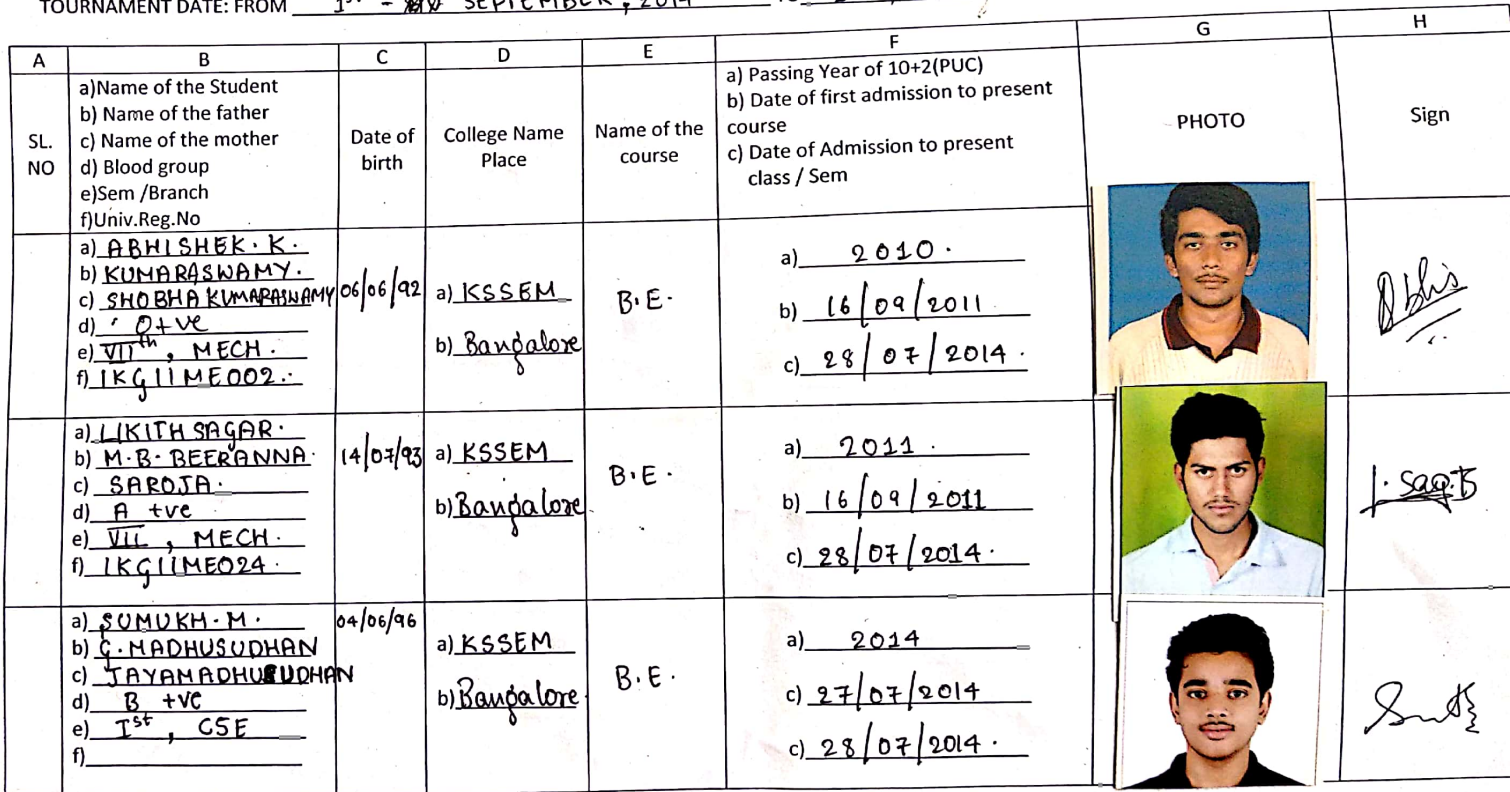 TOURNAMENT DATE: FROM 1st - SEPTEMBER, 2014
A B C D E F G H
SL. NO
a)Name of the Student
b) Name of the father
c) Name of the mother
d) Blood group
e)Sem /Branch
f)Univ.Reg.No
Date of birth
College Name
Place
Name of the course
a) Passing Year of 10+2(PUC)
b) Date of first admission to present
course
c) Date of Admission to present
class / Sem
PHOTO
Sign
a) ABHISHEK. K.
b) KUMARASWAMY.
c) SHOBHA KUMARASWAMY
d) O+ve
e) VIIth, MECH.
f) 1KG11ME002.
06/06/92
a) KSSEM
b) Bangalore
B.E.
a) 2010.
b) 16/09/2011
c) 28/07/2014.
Abhis
a) LIKITH SAGAR.
b) M.B. BEERANNA.
c) SAROJA.
d) A +ve
e) VII, MECH.
f) 1KG11ME024.
14/07/93
a) KSSEM
b) Bangalore
B.E.
a) 2011.
b) 16/09/2011
c) 28/07/2014.
a) SUMUKH. M.
b) G. MADHUSUDHAN
c) JAYAMADHUSUDHAN
d) B +ve
e) Ist, CSE
f)
04/06/96
a) KSSEM
b) Bangalore
B.E.
a) 2014
c) 27/07/2014
c) 28/07/2014.